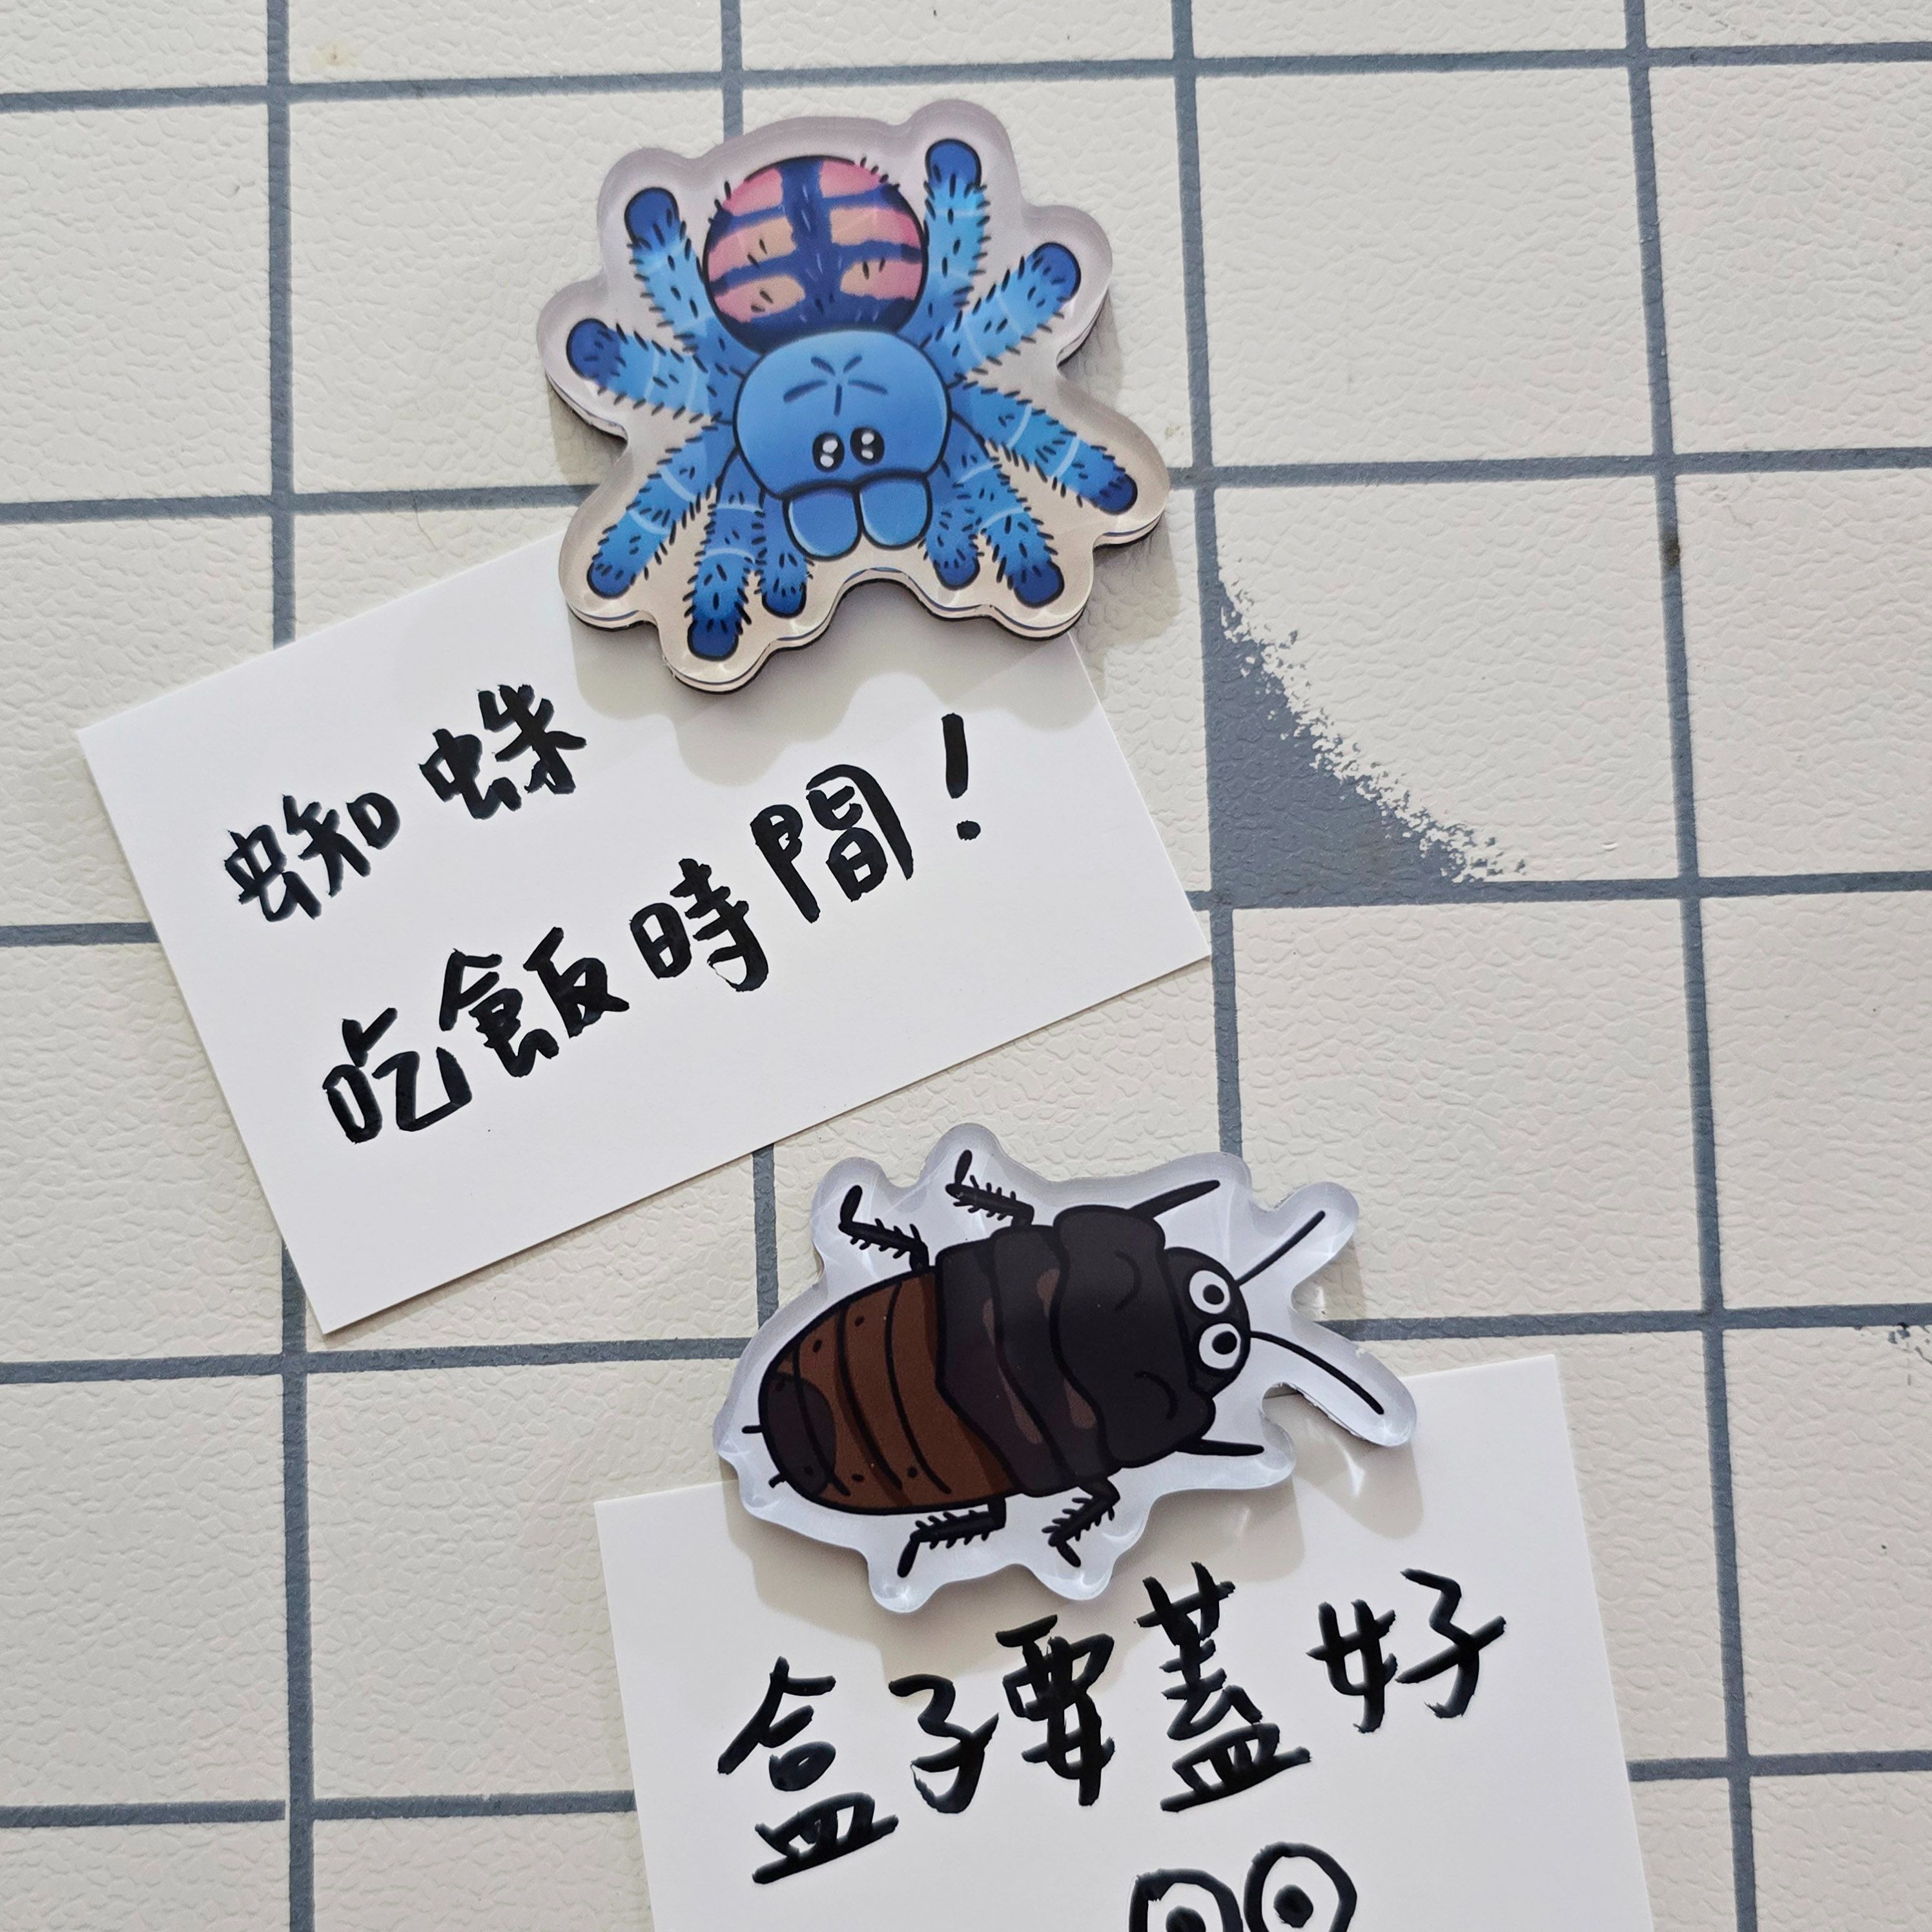 蜘蛛
吃飯時間!
盒子要蓋好